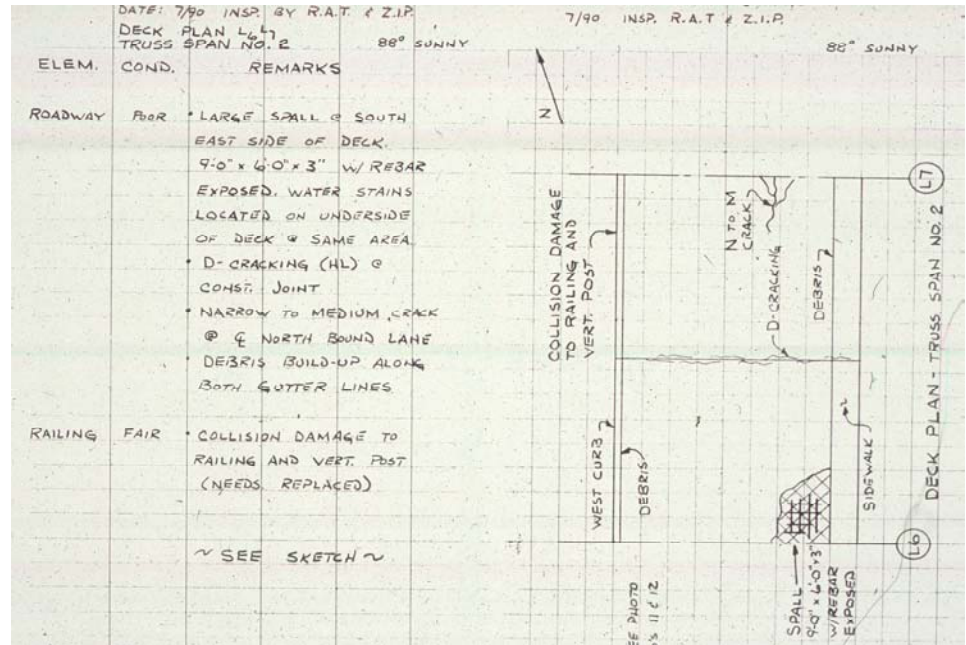 DATE: 7/90 INSP. BY R.A.T. & Z.I.P.
DECK PLAN L6L7
TRUSS SPAN NO. 2 88° SUNNY
ELEM. COND. REMARKS
ROADWAY POOR • LARGE SPALL @ SOUTH
EAST SIDE OF DECK.
9'-0" x 6'-0" x 3" W/ REBAR
EXPOSED. WATER STAINS
LOCATED ON UNDERSIDE
OF DECK @ SAME AREA
• D-CRACKING (HL) @
CONST. JOINT
• NARROW TO MEDIUM CRACK
@ ℄ NORTH BOUND LANE
• DEBRIS BUILD-UP ALONG
BOTH GUTTER LINES.
RAILING FAIR • COLLISION DAMAGE TO
RAILING AND VERT. POST
(NEEDS REPLACED)
~ SEE SKETCH ~
7/90 INSP. R.A.T & Z.I.P.
88° SUNNY
N
COLLISION DAMAGE
TO RAILING AND
VERT. POST
N TO M
CRACK
D-CRACKING
DEBRIS
L7
WEST CURB
DEBRIS
SIDEWALK
L6
DECK PLAN - TRUSS SPAN NO. 2
SPALL
9'-0" x 6'-0" x 3"
W/REBAR
EXPOSED
PHOTO
11 & 12